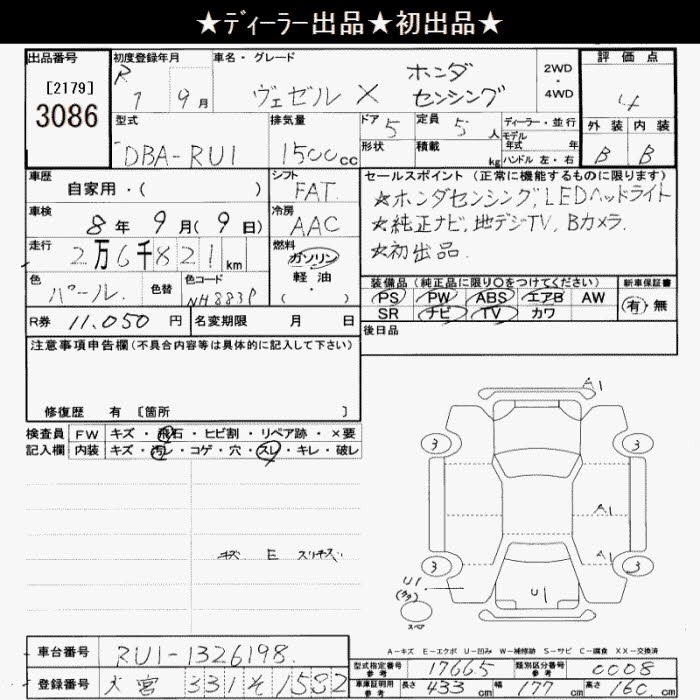 ★ディーラー出品★初出品★
出品番号
[2179]
3086
初度登録年月
R 1 9月
車名・グレード
ヴェゼル X ホンダ センシング
2WD・4WD
評価点
4
外装 内装
B B
型式
DBA-RU1
排気量
1500cc
ドア 5
形状
定員 5人
積載 kg
ディーラー・並行
モデル年式 年
ハンドル 左・右
車歴
自家用・( )
シフト
FAT
車検
8年 9月(9日)
冷房
AAC
走行
2万6千821km
燃料
ガソリン
軽油
・( )
色
パール
色替
色コード
NH883P
R券 11,050円
名変期限 月 日
セールスポイント(正常に機能するものに限ります)
★ホンダセンシング, LEDヘッドライト
★純正ナビ, 地デジTV, Bカメラ.
★初出品.
装備品(純正品に限り○をつけてください)
PS PW ABS エアB AW
SR ナビ TV カワ
新車保証書
有・無
後日品
注意事項申告欄(不具合内容等は具体的に記入して下さい)
修復歴 有 [箇所 ]
検査員記入欄
FW キズ・飛石・ヒビ割・リペア跡・×要
内装 キズ・汚レ・コゲ・穴・スレ・キレ・破レ
キズ E スリキズ
A1
3 3
A1
A1
3 3
U1
U1
スペア
A-キズ E-エクボ U-凹み W-補修跡 S-サビ C-腐食 XX-交換済
車台番号 RU1-1326198
登録番号 大宮 331 そ 1582
型式指定番号 参考 17665
類別区分番号 参考 0008
車庫証明用 参考 長さ 433cm 幅 177cm 高さ 160cm